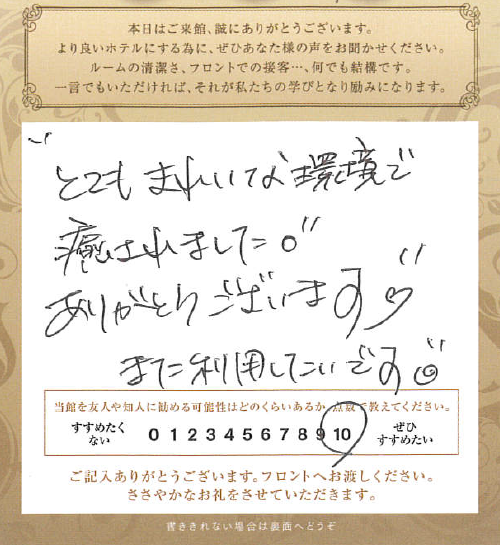 本日はご来館、誠にありがとうございます。
より良いホテルにする為に、ぜひあなた様の声をお聞かせください。
ルームの清潔さ、フロントでの接客…、何でも結構です。
一言でもいただければ、それが私たちの学びとなり励みになります。
とてもきれいな環境で
癒されました。
ありがとうございます♡
また利用したいです
当館を友人や知人に勧める可能性はどのくらいあるか、点数で教えてください。
すすめたくない 0 1 2 3 4 5 6 7 8 9 10 ぜひすすめたい
ご記入ありがとうございます。フロントへお渡しください。
ささやかなお礼をさせていただきます。
書ききれない場合は裏面へどうぞ